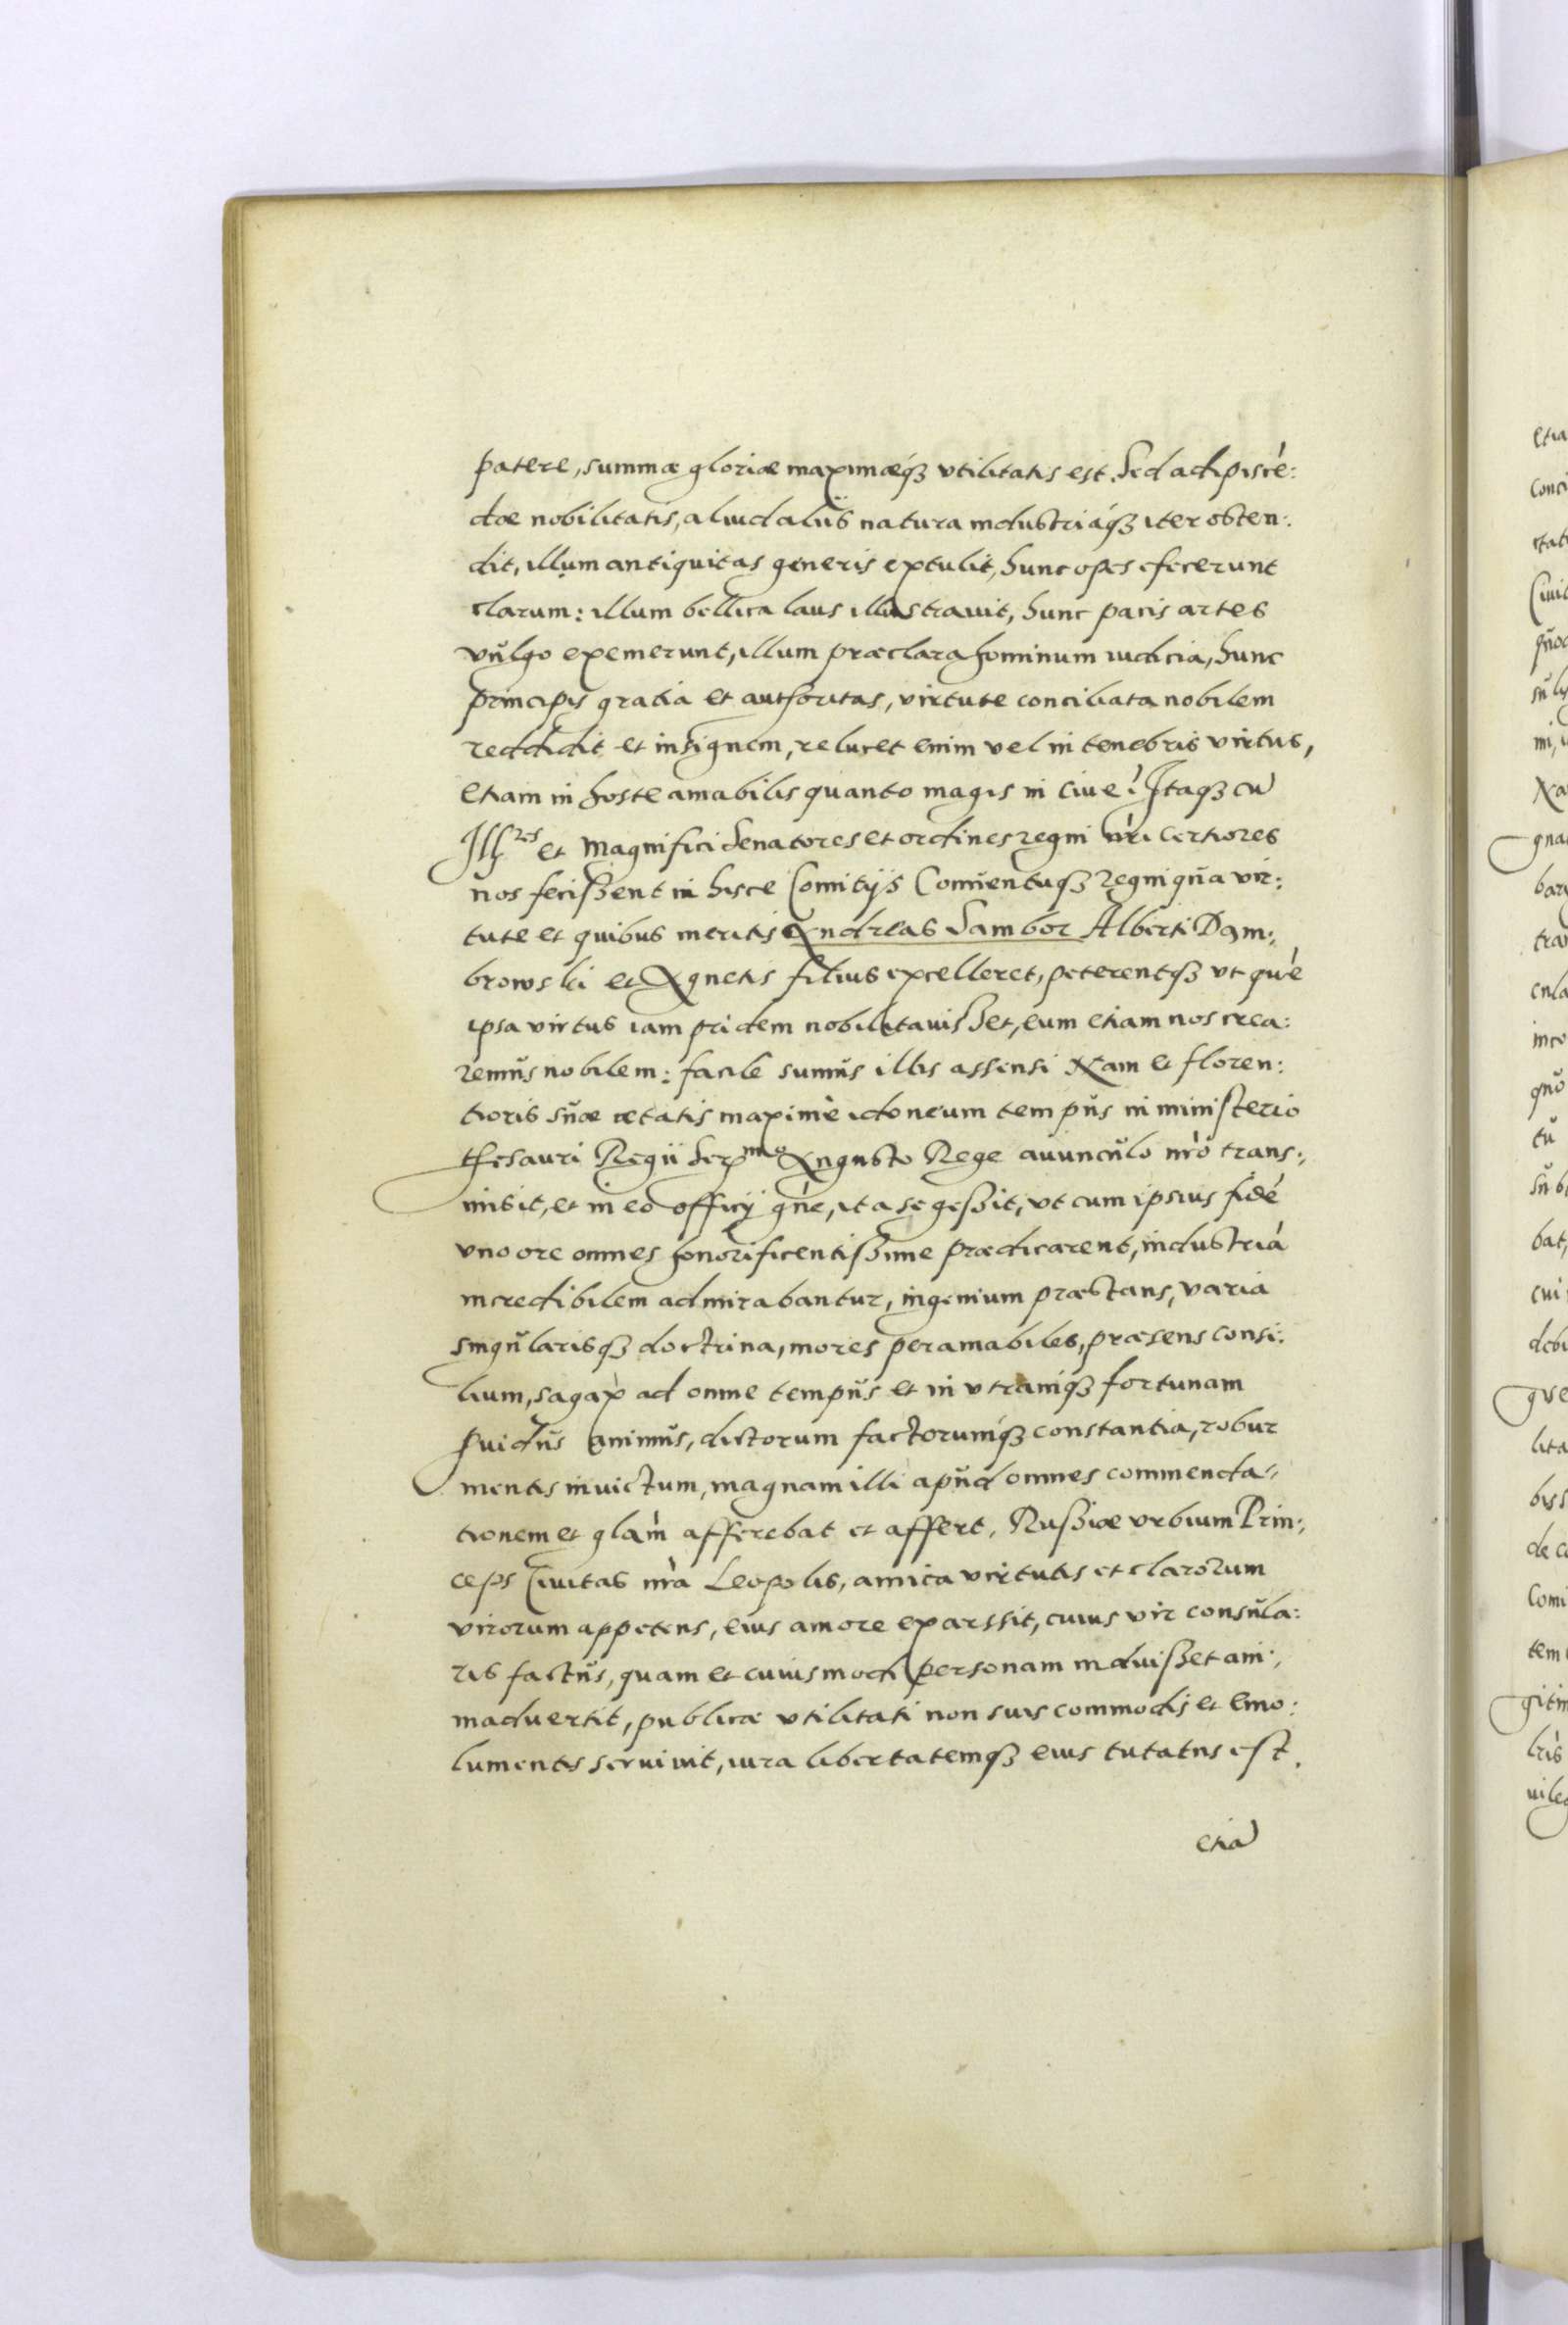 patere, summæ gloriæ maximæq́ȝ vtilitatis est. Sed adipiscē:
dæ nobilitatis, aliud alijs natura industriáqȝ iter osten:
dit, illum antiquitas generis extulit, hunc opes efecerunt
clarum: illum bellica laus illustrauit, hunc pacis artes
vŭlgo exemerunt, illum præclara hominum iudicia, hunc
principis gratia et authoritas, virtute conciliata nobilem
reddidit et insignem, relucet enim vel in tenebris virtus,
etiam in hoste amabilis quanto magis in ciue? Itaqȝ cū
Illres et Magnifici Senatores et ordines regni nr̃i certiores
nos fecißent in hisce Comitijs Conuentuqȝ Regni qŭa vir:
tute et quibus meritis Andreas Sambor Alberti Dąm:
browski et Agnetis filius excelleret, peterentqȝ vt quē
ipsa virtus iam pridem nobilitauisset, eum etiam nos crea:
remŭs nobilem: facile sumŭs illis assensi Nam et floren:
tioris sŭæ ætatis maximè idoneum tempŭs in ministerio
thesauri Regii Sermo Augusto Rege auuncŭlo nr̃o trans:
misit, et in eo officij gñe, ita se geßit, vt cum ipsius fidē
vno ore omnes honorificentißime prædicarent, industriā
incredibilem admirabantur, ingenium præstans, varia
singŭlarisqȝ doctrina, mores peramabiles, præsens consi:
lium, sagax ad omne tempŭs et in vtramq́ȝ fortunam
prouidŭs animŭs, dictorum factorumq́ȝ constantia, robur
mentis inuictum, magnam illi apŭd omnes commenda:
tionem et glam̃ afferebat et affert. Rußiæ vrbium Prin:
ceps Ciuitas nr̃a Leopolis, amica virtutis et clarorum
virorum appetens, eius amore exarssit, cuius vir consŭla:
ris factŭs, quam et cuiusmodi personam induißet ani:
maduertit, publicæ vtilitati non suis commodis et emo:
lumentis seruiuit, iura libertatemqȝ eius tutatus est.
etiā